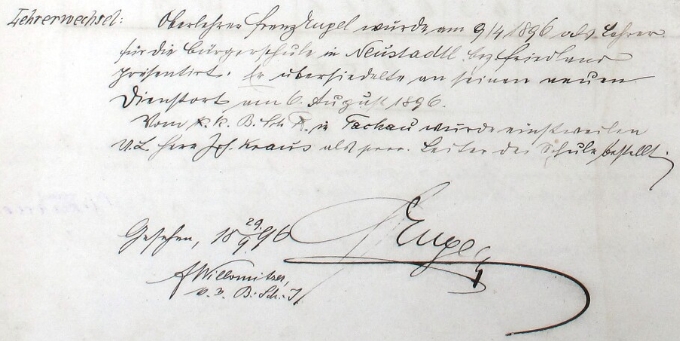 Lehrerwechsel: Oberlehrer Franz Engel wurde am 9/4 1896 als Lehrer
für die Bürgerschule in Neustadtl bey Friedland
präsentirt. Er übersiedelte an seinen neuen
Dienstort am 6. August 1896.
Vom k. k. B. Sch. R. in Tachau wurde einstweilen
U. L. Herr Joh. Kraus als prov. Leiter der Schule bestellt.
Gesehen, 18 29./9. 96
Engel
A Willomitzer,
B. Sch. I